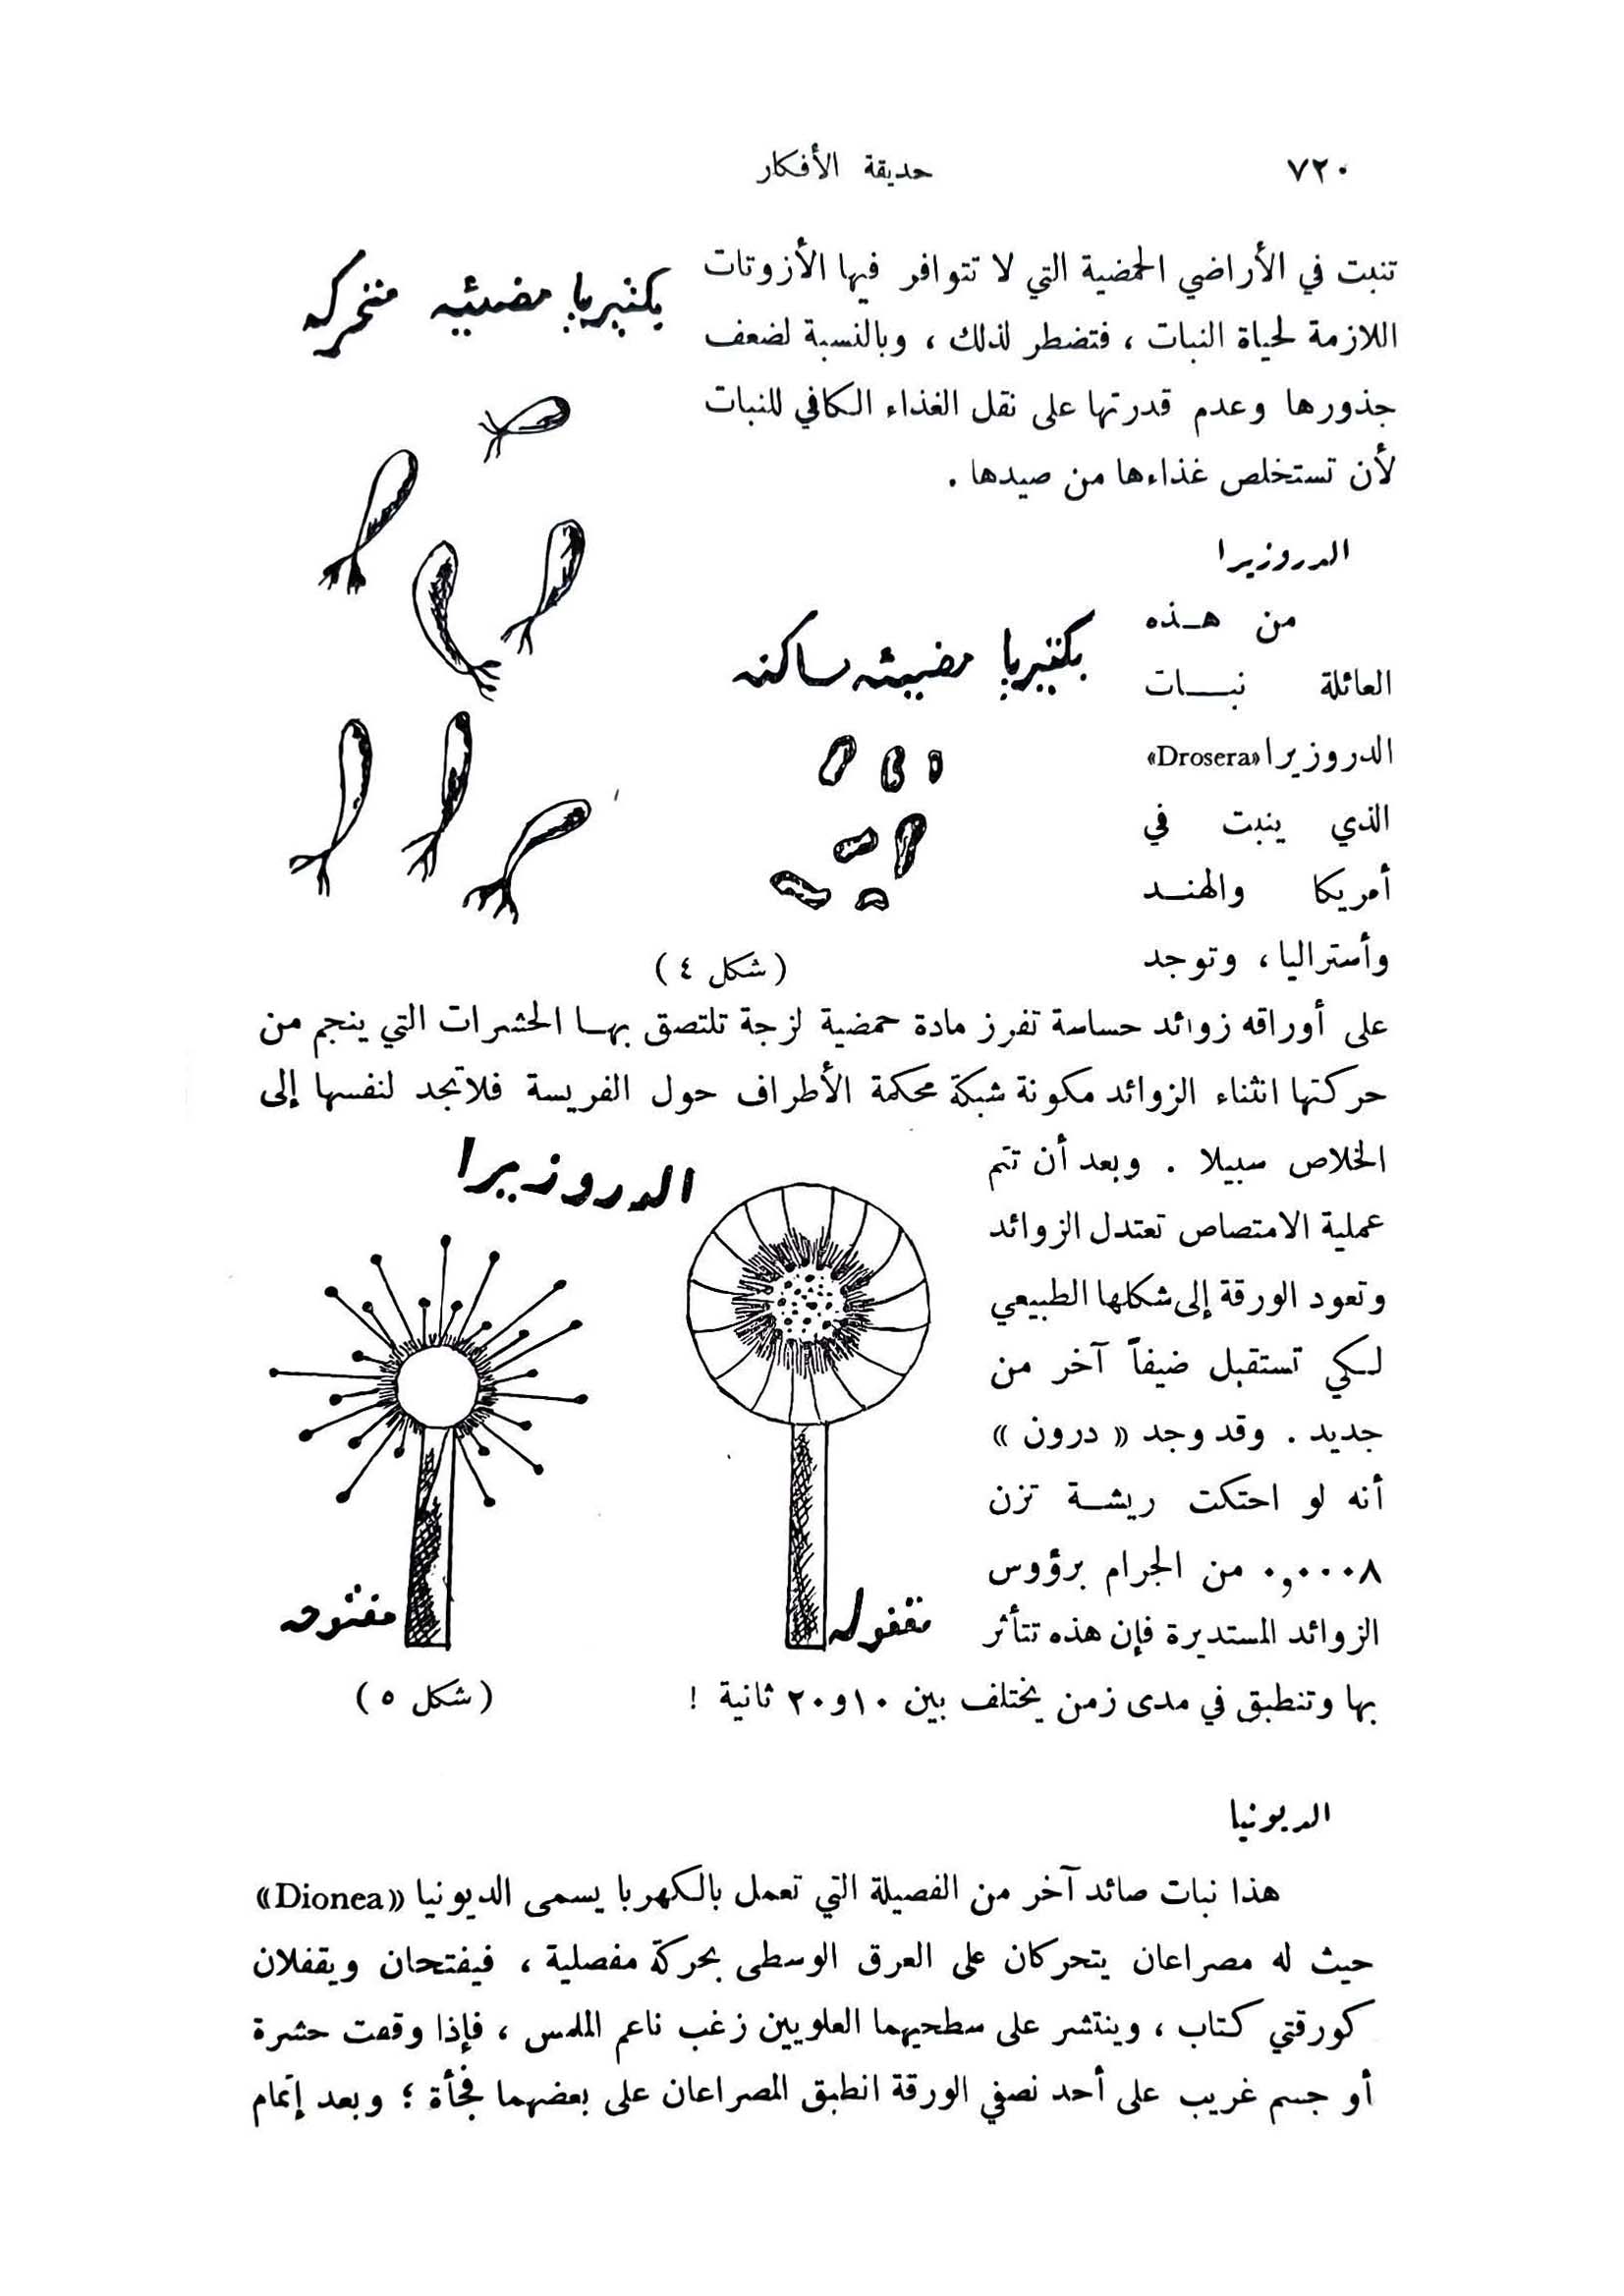 ٧٢٠
حديقة الأفكار
تنبت في الأراضي الحمضية التي لا تتوافر فيها الأزوتات
اللازمة لحياة النبات ، فتضطر لذلك ، وبالنسبة لضعف
جذورها وعدم قدرتها على نقل الغذاء الكافي للنبات
لأن تستخلص غذاءها من صيدها .
بكتيريا مضيئه متحركه
الدروزيرا
من هـذه
العائلة نبــات
الدروزيرا «Drosera»
الذي ينبت في
أمريكا والهنــد
وأستراليا ، وتوجد
بكتيريا مضيئه ساكنه
(شكل ٤)
على أوراقه زوائد حساسة تفرز مادة حمضية لزجة تلتصق بهـا الحشرات التي ينجم من
حركتها انثناء الزوائد مكونة شبكة محكمة الأطراف حول الفريسة فلاتجد لنفسها إلى
الخلاص سبيلا . وبعد أن تتم
عملية الامتصاص تعتدل الزوائد
وتعود الورقة إلى شكلها الطبيعي
لـكي تستقبل ضيفاً آخر من
جديد . وقد وجد « درون »
أنه لو احتكت ريشــة تزن
٠,٠٠٠٨ من الجرام برؤوس
الزوائد المستديرة فإن هذه تتأثر
بها وتنطبق في مدى زمن يختلف بين ١٠و٢٠ ثانية !
الدروزيرا
مقفوله
مفتوحه
(شكل ٥)
الديونيا
هذا نبات صائد آخر من الفصيلة التي تعمل بالكهربا يسمى الديونيا «Dionea»
حيث له مصراعان يتحركان على العرق الوسطى بحركة مفصلية ، فيفتحان ويقفلان
كورقتي كتاب ، وينتشر على سطحيهما العلويين زغب ناعم الملمس ، فإذا وقفت حشرة
أو جسم غريب على أحد نصفي الورقة انطبق المصراعان على بعضهما فجأة ؛ وبعد إتمام